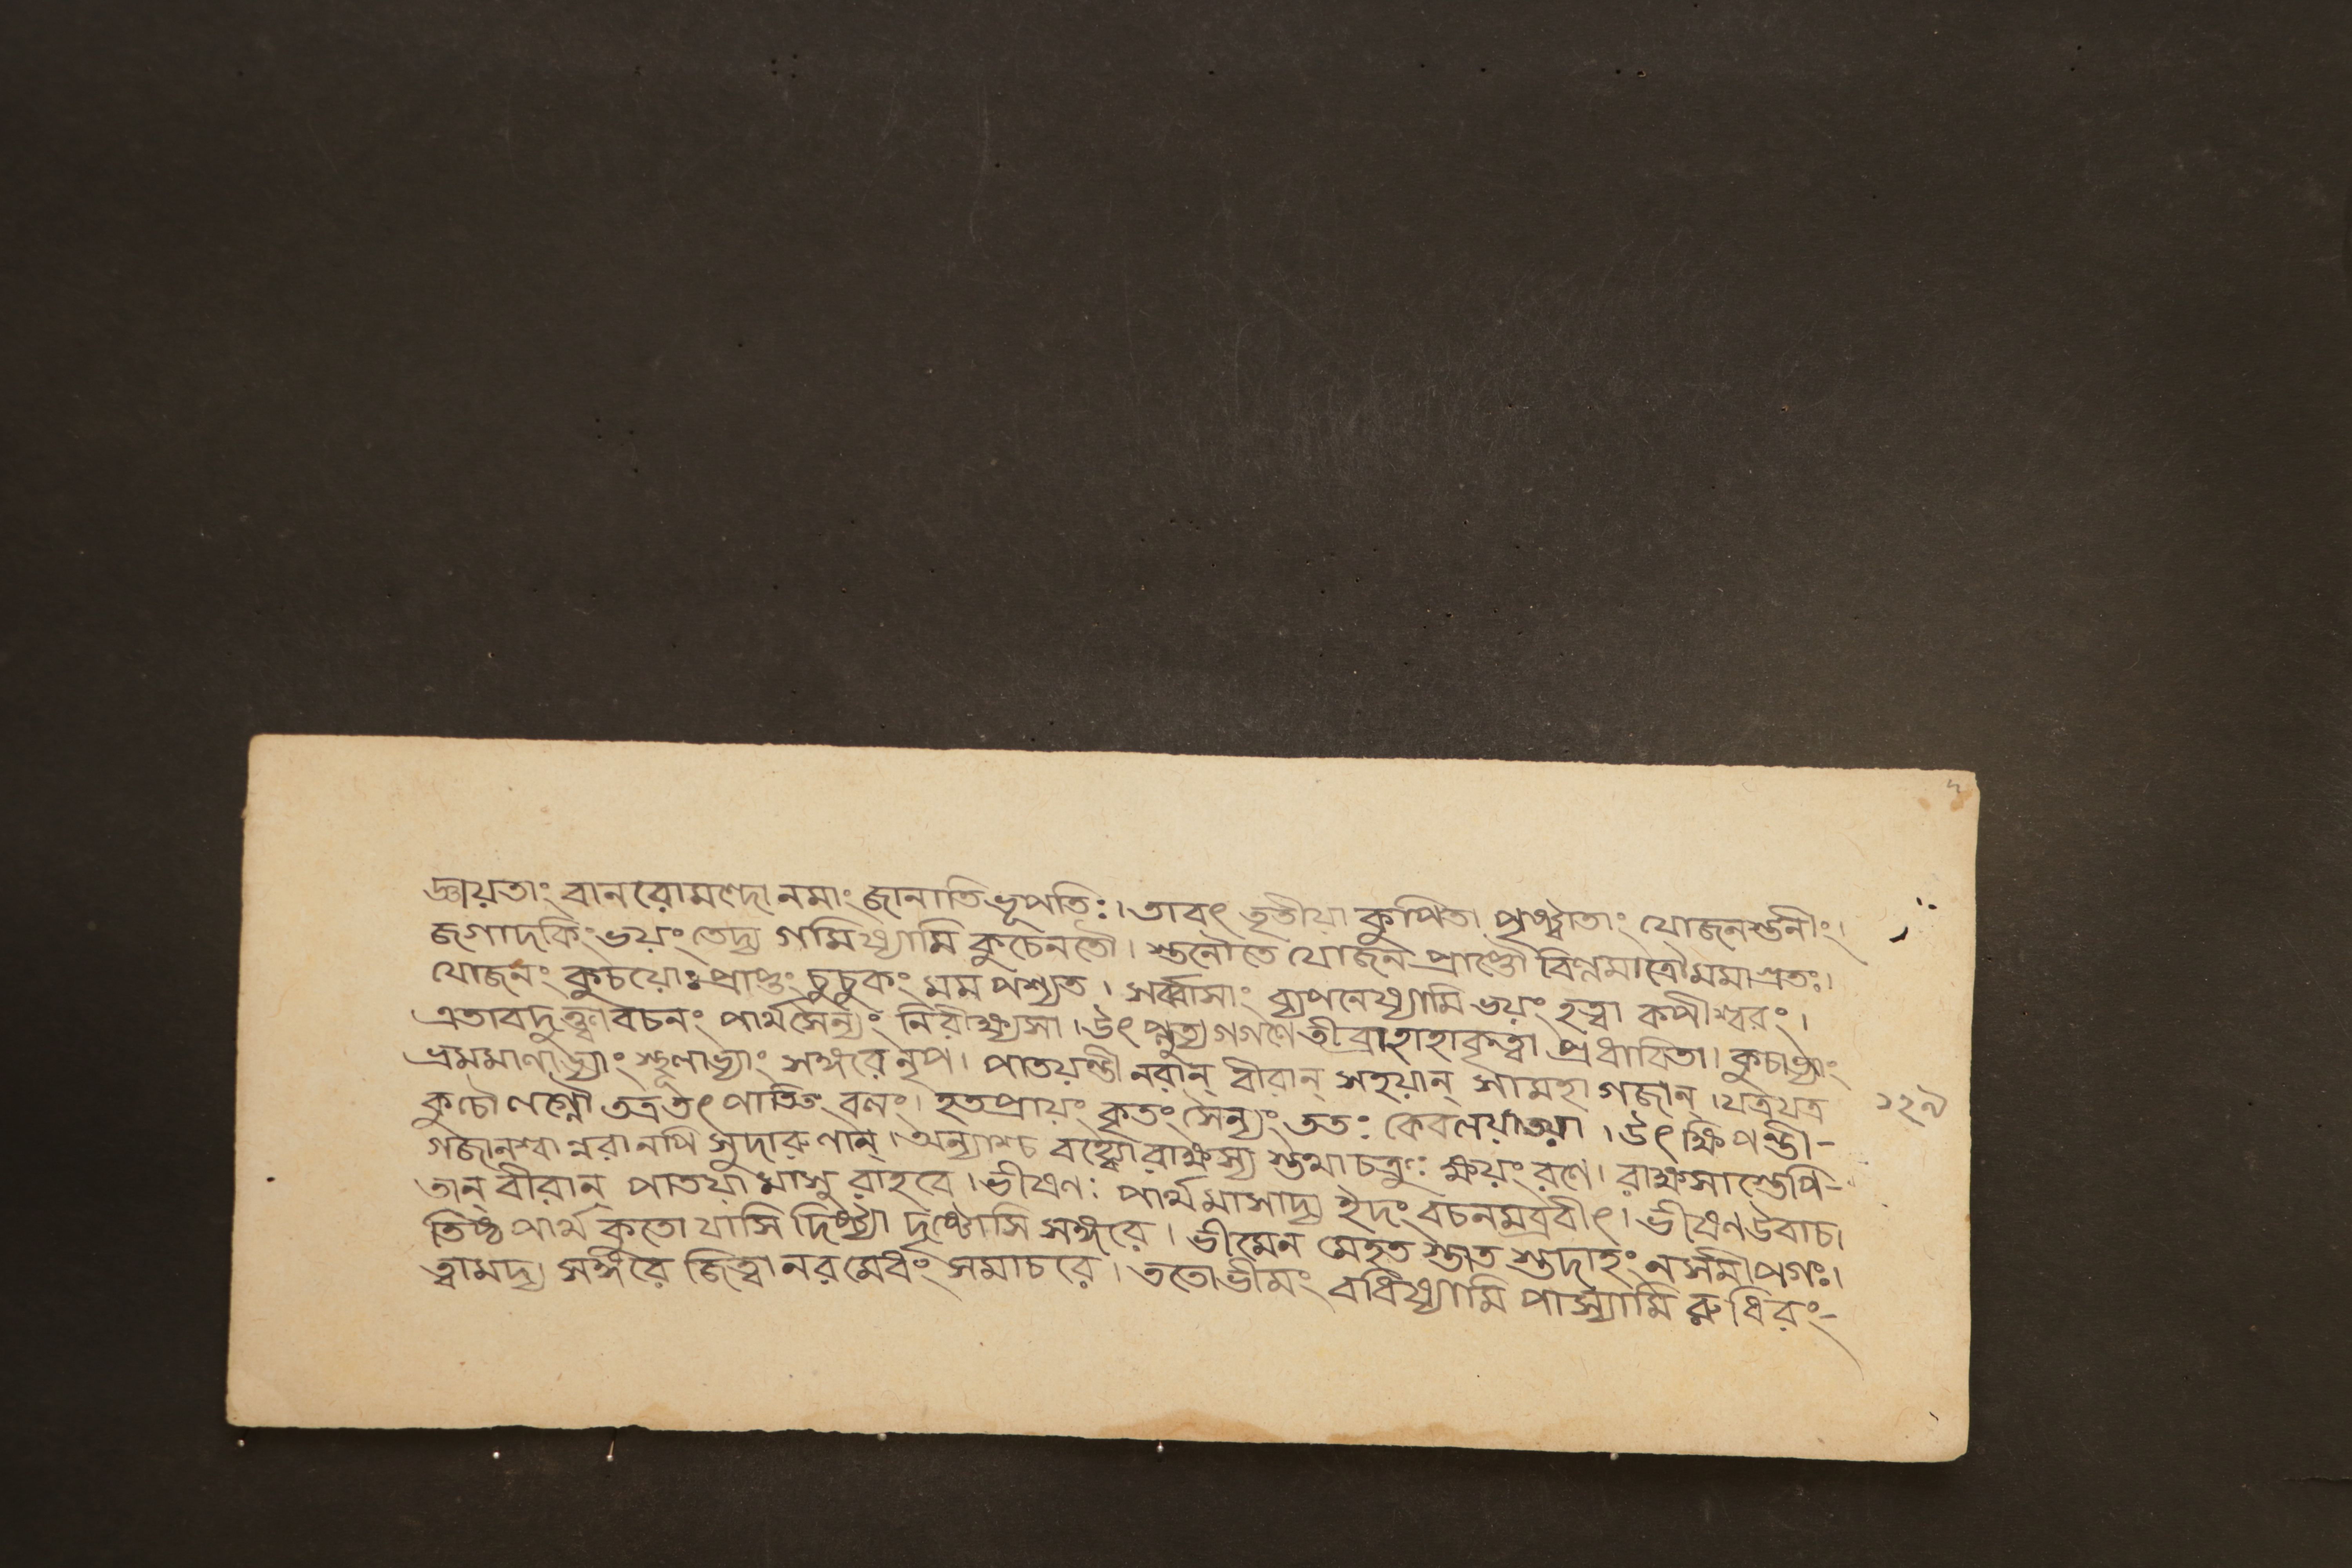 জ্ঞায়তাং বানরোমণ্দোনমাং জানাতি ভূপতিঃ। তাবৎ তৃতীয়া কুপিতা প্রাহ্বাতাং যোজনস্তনীং।
জগাদকিং ভয়ং তেদ্য গমিষ্যামি কুচেনতৌ। স্তনৌতে যোজন প্রাপ্তৌ বিগ্নমাত্রৌ মমাগ্রতঃ।
যোজনং কুচয়োঃ প্রাপ্তং চুচুকং মম পশ্যত। সর্ব্বাসাং ব্যপনেষ্যামি ভয়ং হত্বা কপীশ্বরং।
এতাবদুক্ত্বা বচনং পার্থসৈন্যং নিরীক্ষ্যসা। উৎপ্লুত্য গগণে তীব্রা হাহাকৃত্বা প্রধাবিতা। কুচাভ্যাং
ভ্রমমাণাভ্যাং স্থূলাভ্যাং সঙ্গরে নৃপ। পাতয়ন্তী নরান্ বীরান্ সহয়ান্ সামহা গজান্। যত্রযত্র
কুচৌ লগ্নৌ তত্রতৎ পাতিতং বলং। হতপ্রায়ং কৃতং সৈন্যং ততঃ কেবলয়াতয়া। উৎক্ষিপন্তী-
গজানশ্বান্নরানপি সুদারুণান্। অন্যাশ্চ বহ্ব্যো রাক্ষস্য স্তথা চক্রুঃ ক্ষয়ং রণে। রাক্ষসাস্তেপি-
তান্ বীরান্ পাতয়ামাসু রাহবে। ভীষণঃ পার্থমাসাদ্য ইদং বচনমব্রবীৎ। ভীষণ উবাচ।
তিষ্ঠ পার্থ কুতো যাসি দিষ্ট্যা দৃষ্টোসি সঙ্গরে। ভীমেন মেহত স্তাত স্তদাহং নসমীপগঃ।
ত্বামদ্য সঙ্গরে জিত্বা নরমেধং সমাচরে। ততোভীমং বধিষ্যামি পাস্যামি রুধিরং-
১২৯